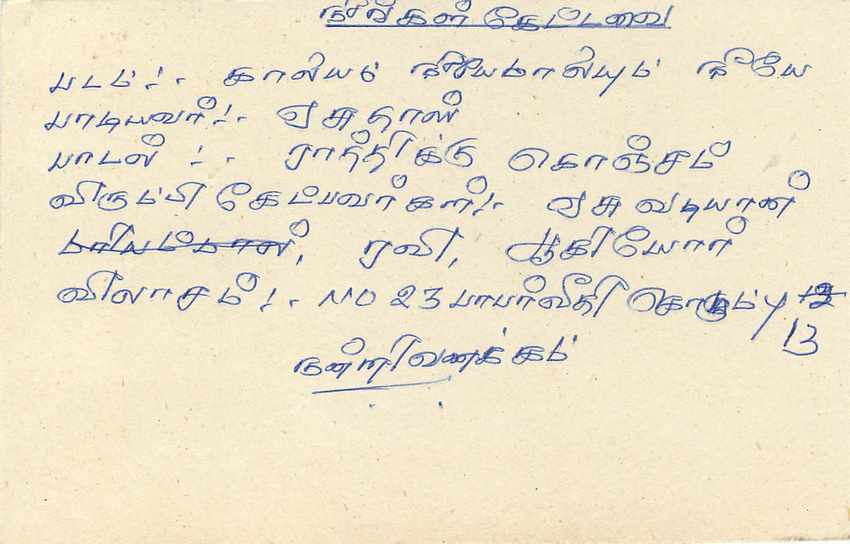 நீங்கள் கேட்டவை
படம்:- காலியும் நீயே மாலையும் நீயே
பாடியவர்:- ஏசுதாஸ்
பாடல் :- ராத்திரிக்கு கொஞ்சம்
விரும்பி கேட்பவர்கள்:- ஏசுவடியான்
ரவி, ஆகியோர்
விலாசம்:- NO 23 பாபர்வீதி கொழும்பு 13
நன்றிவணக்கம்